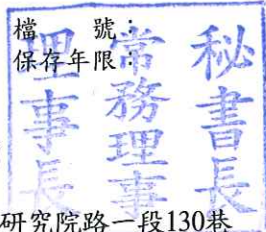 檔　　號：
保存年限：
秘書長
常務理事
理事長
研究院路一段130巷